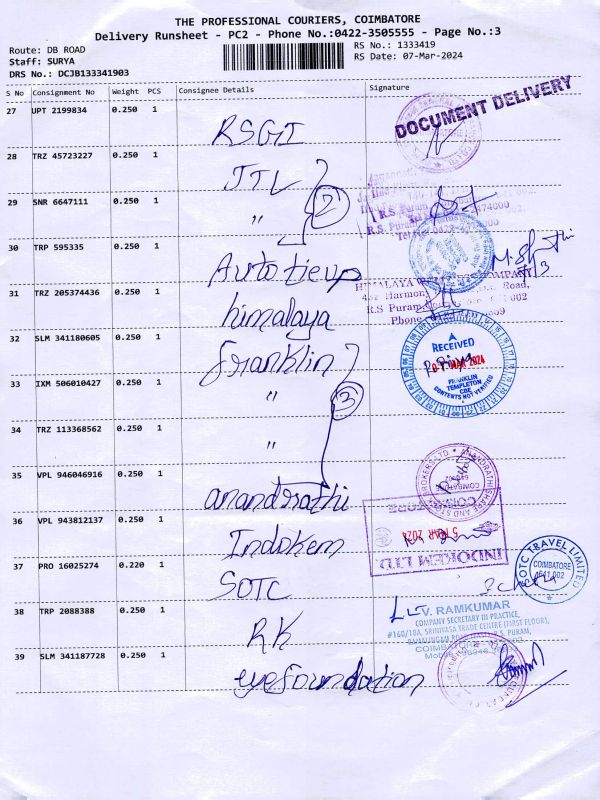 THE PROFESSIONAL COURIERS, COIMBATORE
Delivery Runsheet - PC2 - Phone No.:0422-3505555 - Page No.:3
Route: DB ROAD
RS No.: 1333419
Staff: SURYA
RS Date: 07-Mar-2024
DRS No.: DCJB133341903
S No Consignment No Weight PCS Consignee Details Signature
DOCUMENT DELIVERY
27 UPT 2199834 0.250 1
RSGI
28 TRZ 45723227 0.250 1
JTV
29 SNR 6647111 0.250 1
" 2
R.S. Puram
30 TRP 595335 0.250 1
Auto tieup
HIMALAYA COMPANY
31 TRZ 205374436 0.250 1
Harmony Road,
R.S Puram 002
himalaya
Phone
32 SLM 341180605 0.250 1
franklin
RECEIVED
MAR 2024
FRANKLIN
TEMPLETON
CBE
CONTENTS NOT VERIFIED
33 IXM 506010427 0.250 1
" 3
34 TRZ 113368562 0.250 1
"
35 VPL 946046916 0.250 1
anandrathi
ANANDRATHI SHARE AND STOCK BROKERS LTD
COIMBATORE
36 VPL 943812137 0.250 1
Indokem
5 MAR 202
INDOKEM LTD
37 PRO 16025274 0.220 1
SOTC
SOTC TRAVEL LIMITED
COIMBATORE
641 002
38 TRP 2088388 0.250 1
RK
V. RAMKUMAR
COMPANY SECRETARY IN PRACTICE,
#160/18A, SRINIVASA TRADE CENTRE (FIRST FLOOR),
R.S. PURAM,
COIMBATORE
39 SLM 341187728 0.250 1
eyefoundation